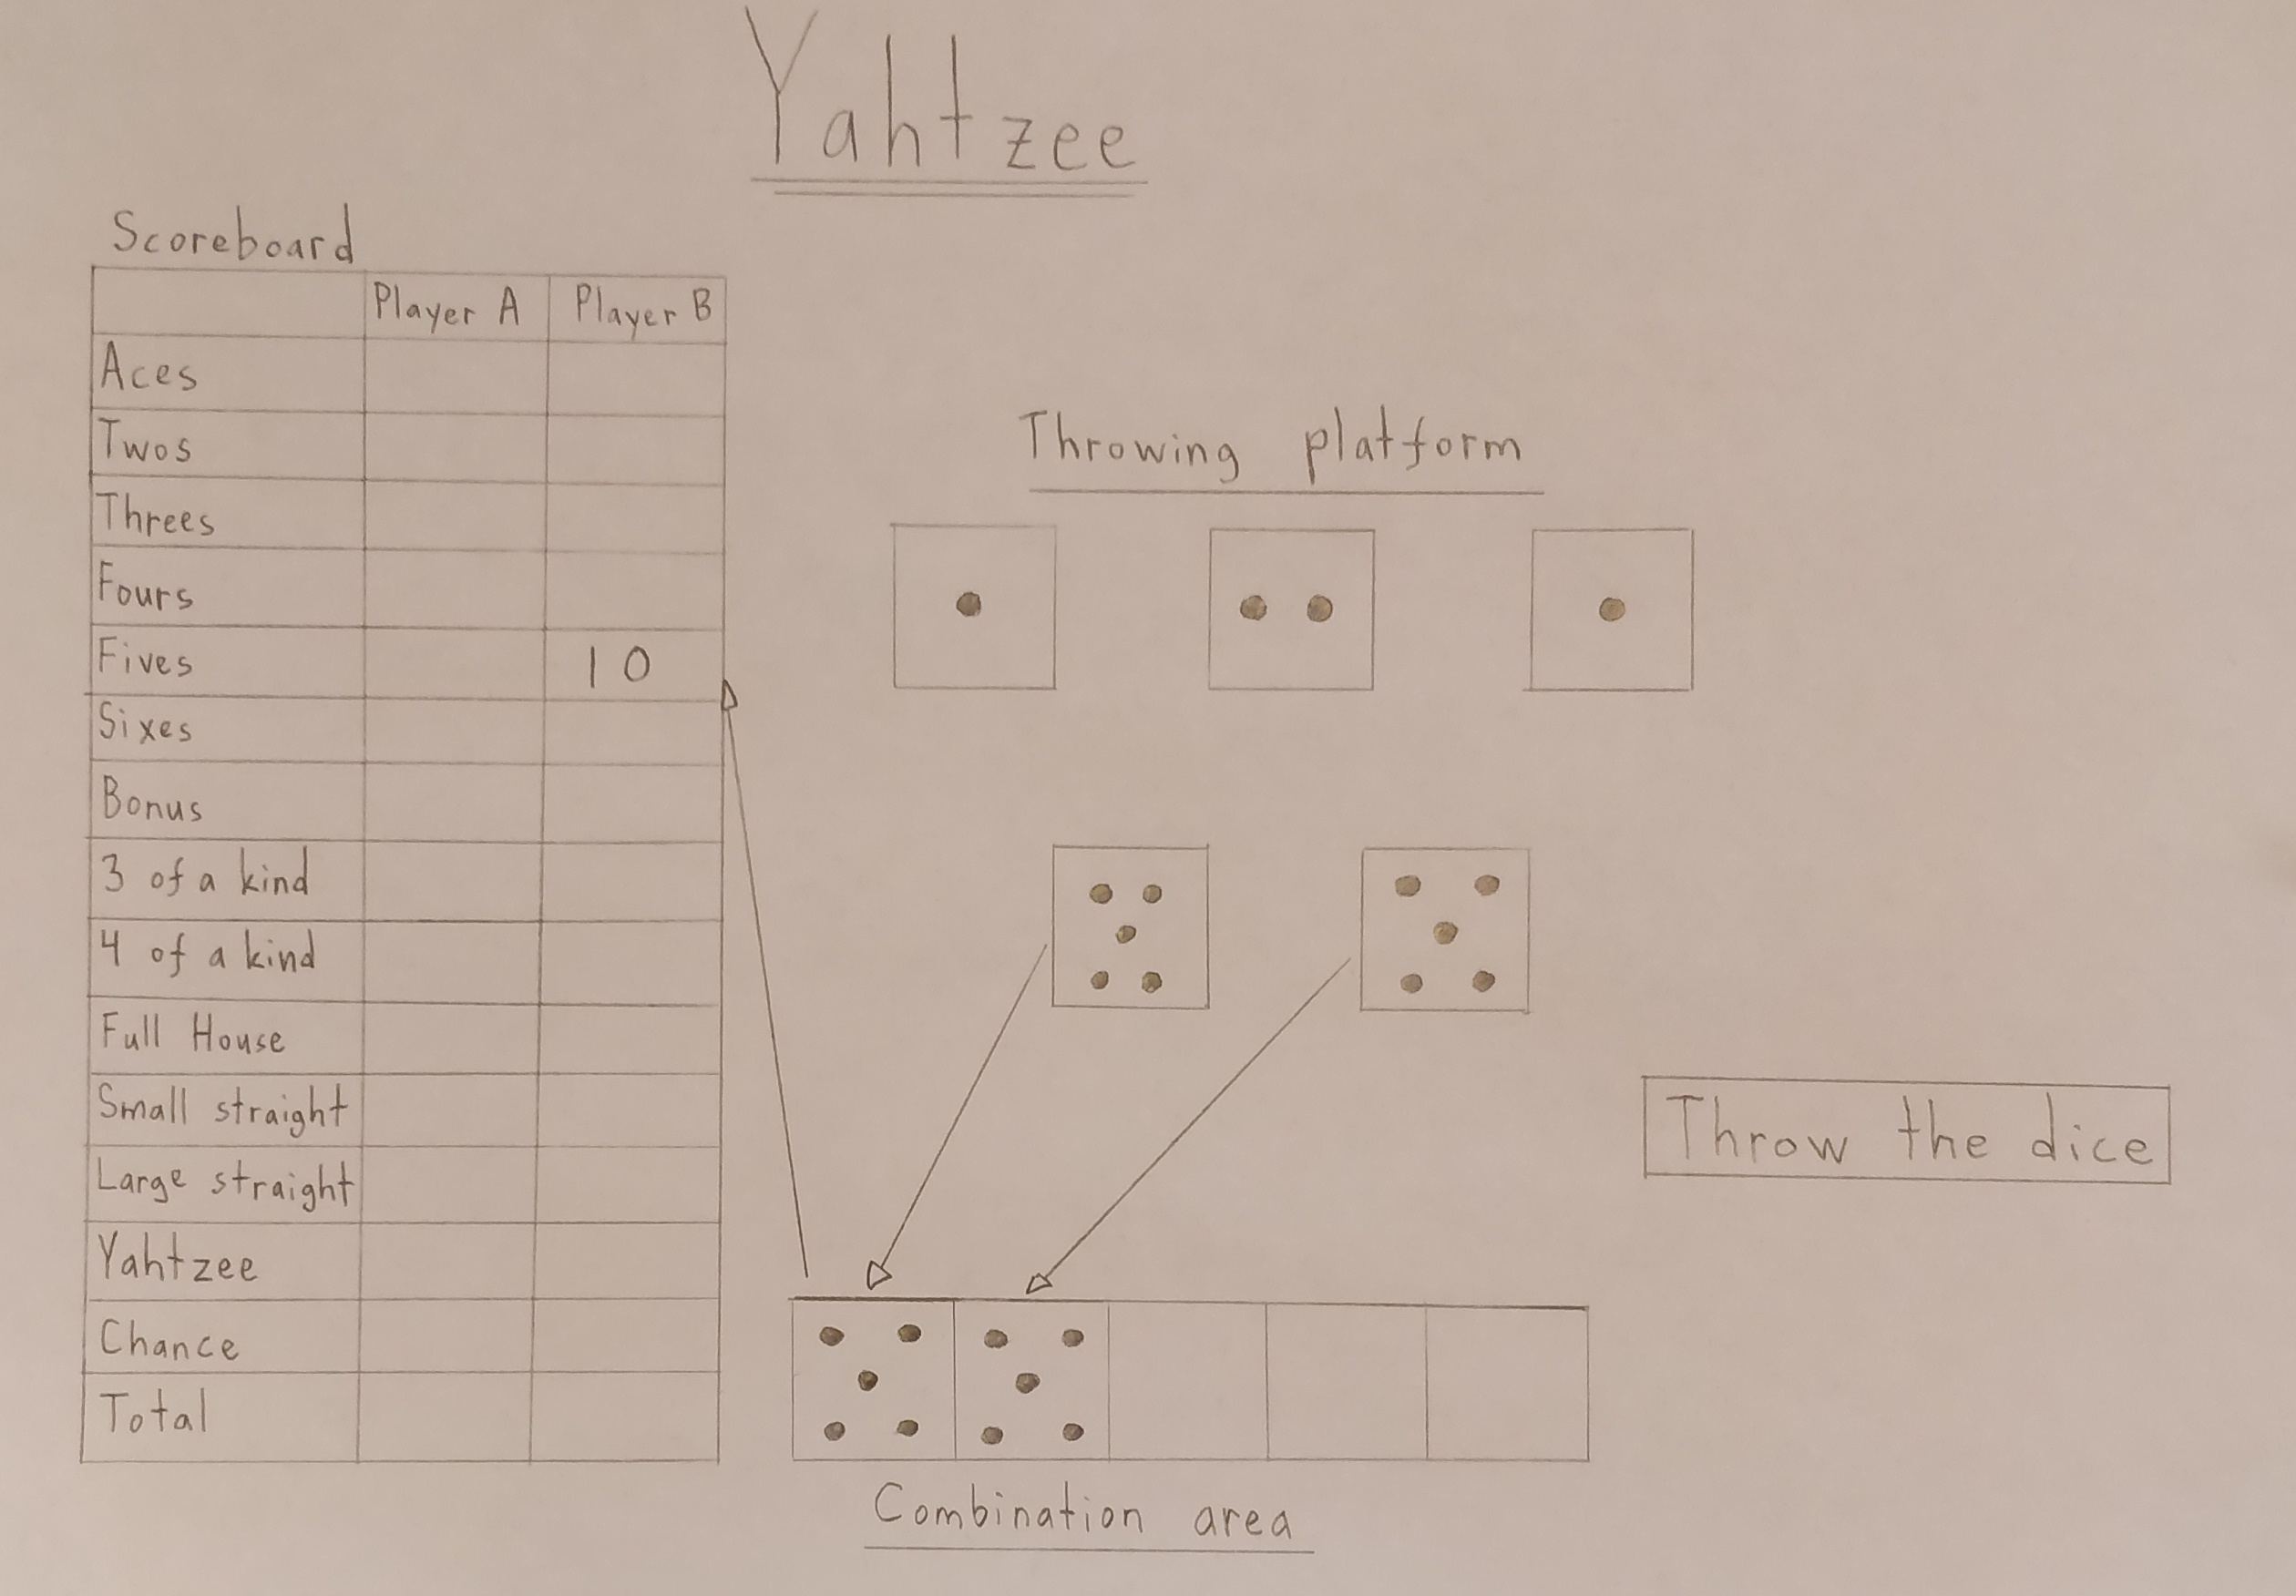 Yahtzee
Scoreboard
Player A Player B
Aces
Twos
Threes
Fours
Fives 10
Sixes
Bonus
3 of a kind
4 of a kind
Full House
Small straight
Large straight
Yahtzee
Chance
Total
Throwing platform
Throw the dice
Combination area